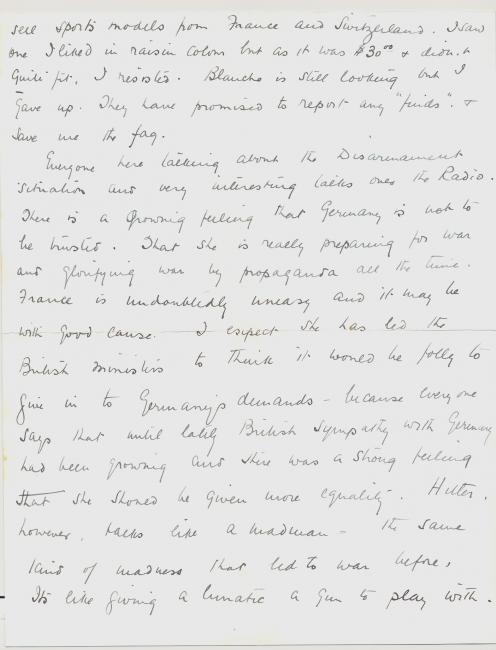 sell sports models from France and Switzerland. I saw
one I liked in raisin colour but as it was $30.00 & didn't
quite fit, I resisted. Blanche is still looking but I
gave up. They have promised to report any "finds". &
save me the fag.
Everyone here talking about the Disarmament
situation and very interesting talks over the Radio.
There is a growing feeling that Germany is not to
be trusted. That she is really preparing for war
and glorifying war by propaganda all the time.
France is undoubtedly uneasy and it may be
with good cause. I expect she has led the
British ministers to think it would be folly to
give in to Germany's demands - because everyone
says that until lately British sympathy with Germany
had been growing and there was a strong feeling
that she should be given more equality. Hitler,
however, talks like a madman - the same
kind of madness that led to war before,
It's like giving a lunatic a gun to play with.